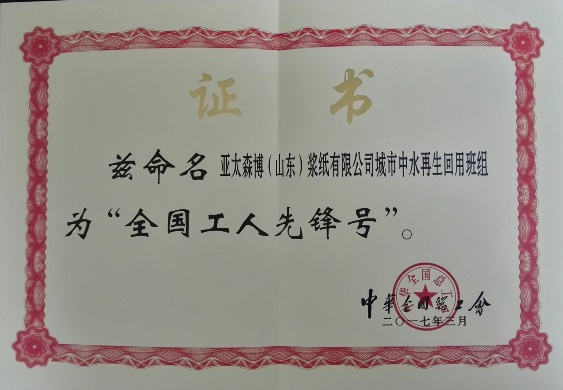 证书
兹命名 亚太森博（山东）浆纸有限公司城市中水再生回用班组
为“全国工人先锋号”。
中华全国总工会
中华全国總工會
二〇一七年三月